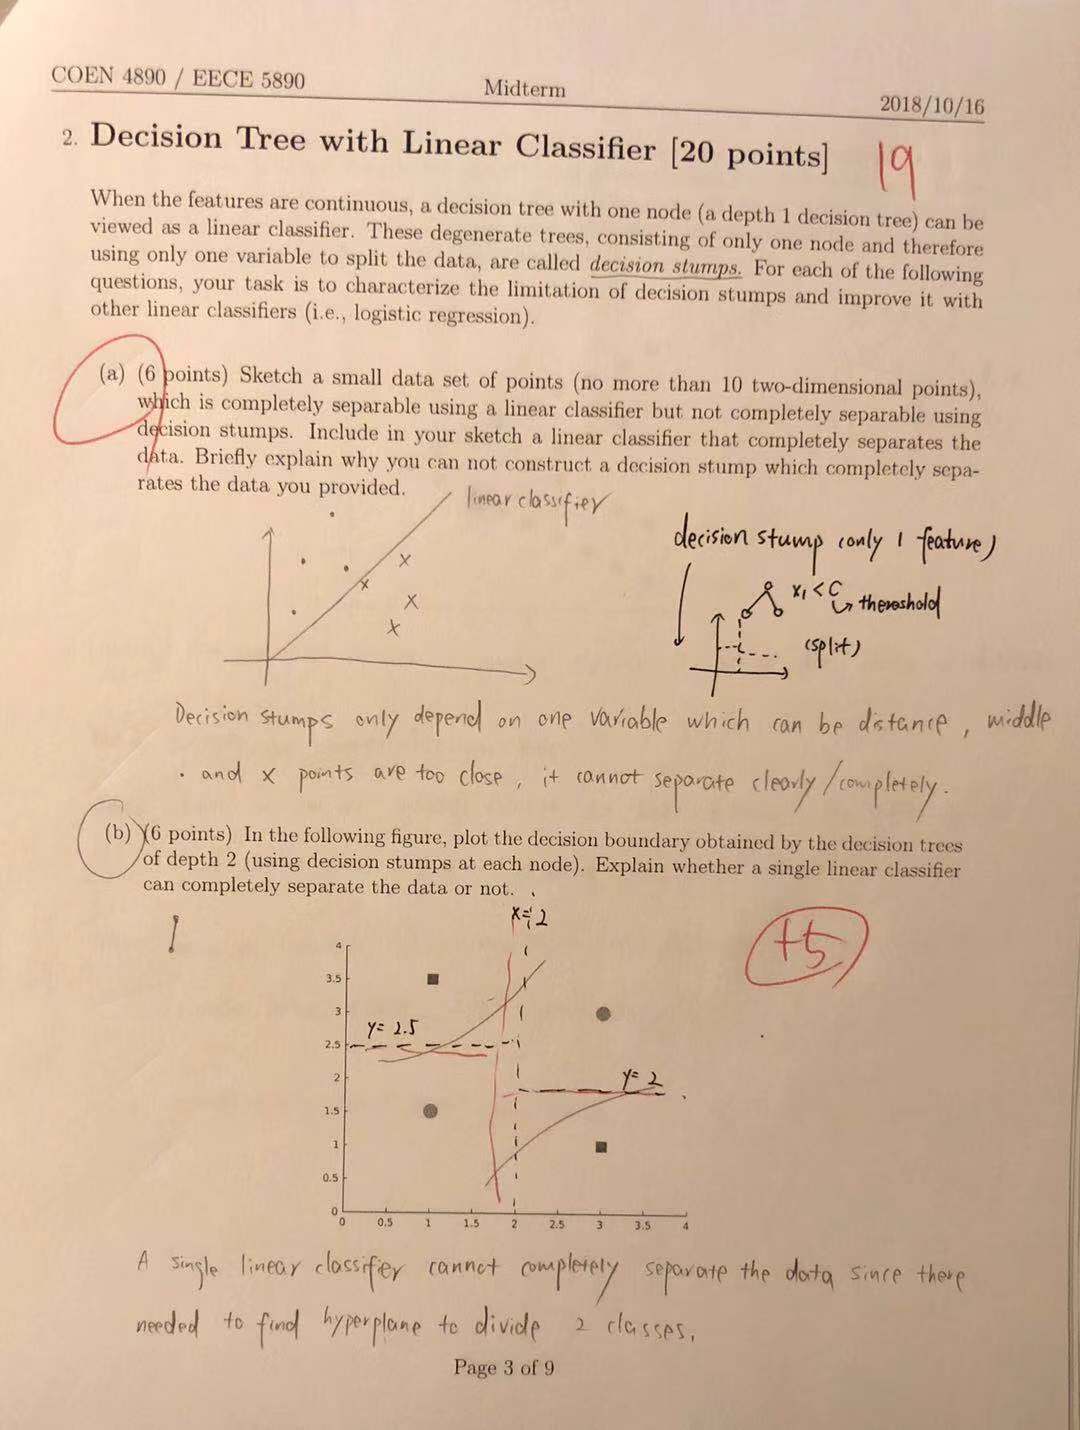 COEN 4890 / EECE 5890
Midterm
2018/10/16
2. Decision Tree with Linear Classifier [20 points]
19
When the features are continuous, a decision tree with one node (a depth 1 decision tree) can be
viewed as a linear classifier. These degenerate trees, consisting of only one node and therefore
using only one variable to split the data, are called decision stumps. For each of the following
questions, your task is to characterize the limitation of decision stumps and improve it with
other linear classifiers (i.e., logistic regression).
(a) (6 points) Sketch a small data set of points (no more than 10 two-dimensional points),
which is completely separable using a linear classifier but not completely separable using
decision stumps. Include in your sketch a linear classifier that completely separates the
data. Briefly explain why you can not construct a decision stump which completely sepa-
rates the data you provided.
linear classifier
decision stump (only 1 feature)
x₁ < C
theroshold
(split)
x
x
x
x
Decision stumps only depend on one variable which can be distance, middle
. and x points are too close, it cannot separate clearly/completely.
(b) (6 points) In the following figure, plot the decision boundary obtained by the decision trees
of depth 2 (using decision stumps at each node). Explain whether a single linear classifier
can completely separate the data or not.
x=2
+5
4
3.5
3
y=2.5
2.5
2
y=2
1.5
1
0.5
0
0 0.5 1 1.5 2 2.5 3 3.5 4
A single linear classifier cannot completely separate the data since there
needed to find hyperplane to divide 2 classes.
Page 3 of 9